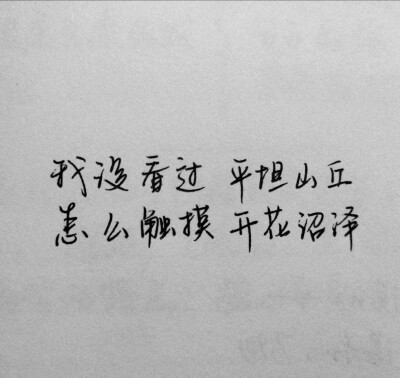 我没看过 平坦山丘
怎么触摸 开花沼泽